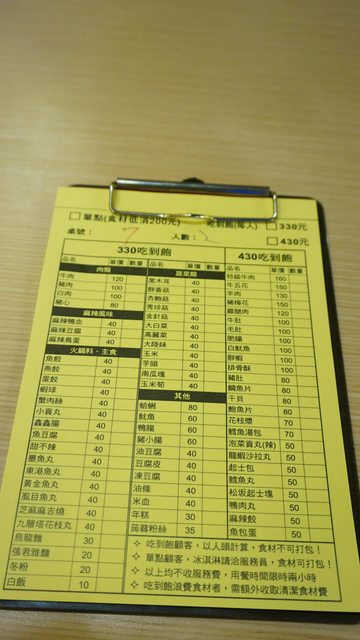 單點(食材低消200元) 吃到飽(每人) 330元
430元
桌號： 7 人數：
330吃到飽
品名 單價 數量
肉類
牛肉 120
豬肉 100
白肉 100
豬心 80
麻辣風味
麻辣鴨血 40
麻辣豆腐 40
麻辣鳥蛋 40
火鍋料‧主食
魚餃 40
燕餃 40
蛋餃 40
蝦球 40
蟹肉絲 40
小貢丸 40
鑫鑫腸 40
魚豆腐 40
甜不辣 40
墨魚丸 40
東港魚丸 40
黃金魚丸 40
虱目魚丸 40
芝麻麻吉燒 40
九層塔花枝丸 40
烏龍麵 30
張君雅麵 20
冬粉 20
白飯 10
品名 單價 數量
蔬菜類
黑木耳 40
鮮香菇 40
杏鮑菇 40
秀珍菇 40
金針菇 40
大白菜 40
高麗菜 40
大陸妹 40
玉米 40
芋頭 40
南瓜塊 40
玉米筍 40
其他
蛤蜊 80
魷魚 60
鴨腸 60
豬小腸 60
油豆腐 40
豆腐皮 40
凍豆腐 40
油條 40
米血 40
年糕 30
蒟蒻粉絲 35
430吃到飽
品名 單價 數量
特級牛肉 160
牛五花 150
羊肉 130
豬梅花 150
雞腿肉 120
牛肚 100
毛肚 100
肥腸 100
白魷魚 100
鮮蝦 100
排骨酥 100
豬肚 80
鯛魚片 80
干貝 80
鮑魚片 80
花枝漿 70
鱈魚湯包 70
泡菜貢丸(辣) 50
龍蝦沙拉丸 50
起士包 50
鱈魚丸 50
松坂起士塊 50
鴨肉丸 50
麻辣餃 50
魚包蛋 50
✧ 吃到飽顧客，以人頭計算，食材不可打包！
✧ 單點顧客，冰淇淋請洽服務員，食材可打包！
✧ 以上均不收服務費，用餐時間限時兩小時
✧ 吃到飽浪費食材者，需額外收取清潔食材費